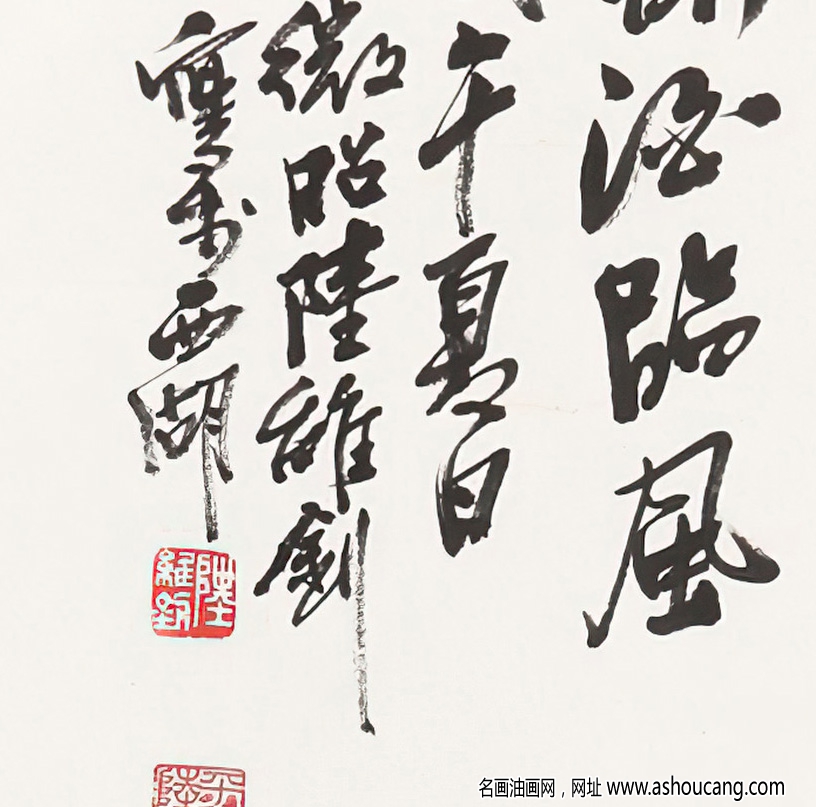 酒臨風
午夏日
微昭陸維釗
西湖
陸維釗
名画油画网，网址 www.ashoucang.com